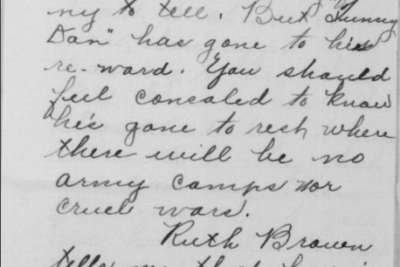 ny to tell. But "Sunny
Dan" has gone to his
re-ward. You should
feel consaled to know
he's gone to rest where
there will be no
army camps nor
cruel wars.
Ruth Brown
tells me that